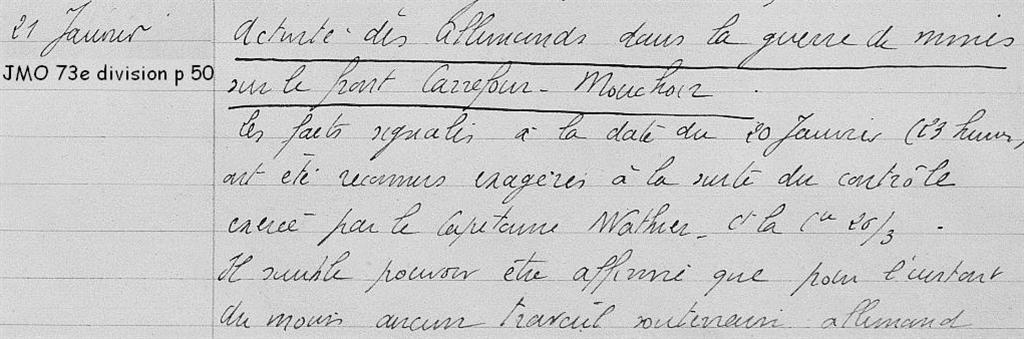 21 Janvier
JMO 73e division p 50
Activité des Allemands dans la guerre de mines
sur le front Carrefour - Mouchoir.
Les faits signalés à la date du 20 Janvier (23 heures)
ont été reconnus exagérés à la suite du contrôle
exercé par le Capitaine Wathier - Ct la Cie 26/3.
Il semble pouvoir être affirmé que pour l'instant
du moins aucun travail souterrain allemand